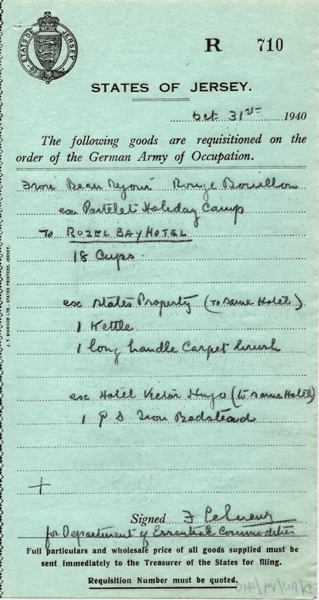 STATES OF JERSEY
R 710
STATES OF JERSEY.
Oct 31st 1940
The following goods are requisitioned on the
order of the German Army of Occupation.
From Beau Sejour Rouge Bouillon
ex Portelet Holiday Camp
To ROZEL BAY HOTEL
18 Cups.
ex States Property (To same Hotel)
1 Kettle
1 long handle Carpet brush
ex Hotel Victor Hugo (to same Hotel)
1 P S Iron Bedstead
Signed F
for Department of Essential Commodities
Full particulars and wholesale price of all goods supplied must be
sent immediately to the Treasurer of the States for filing.
Requisition Number must be quoted.